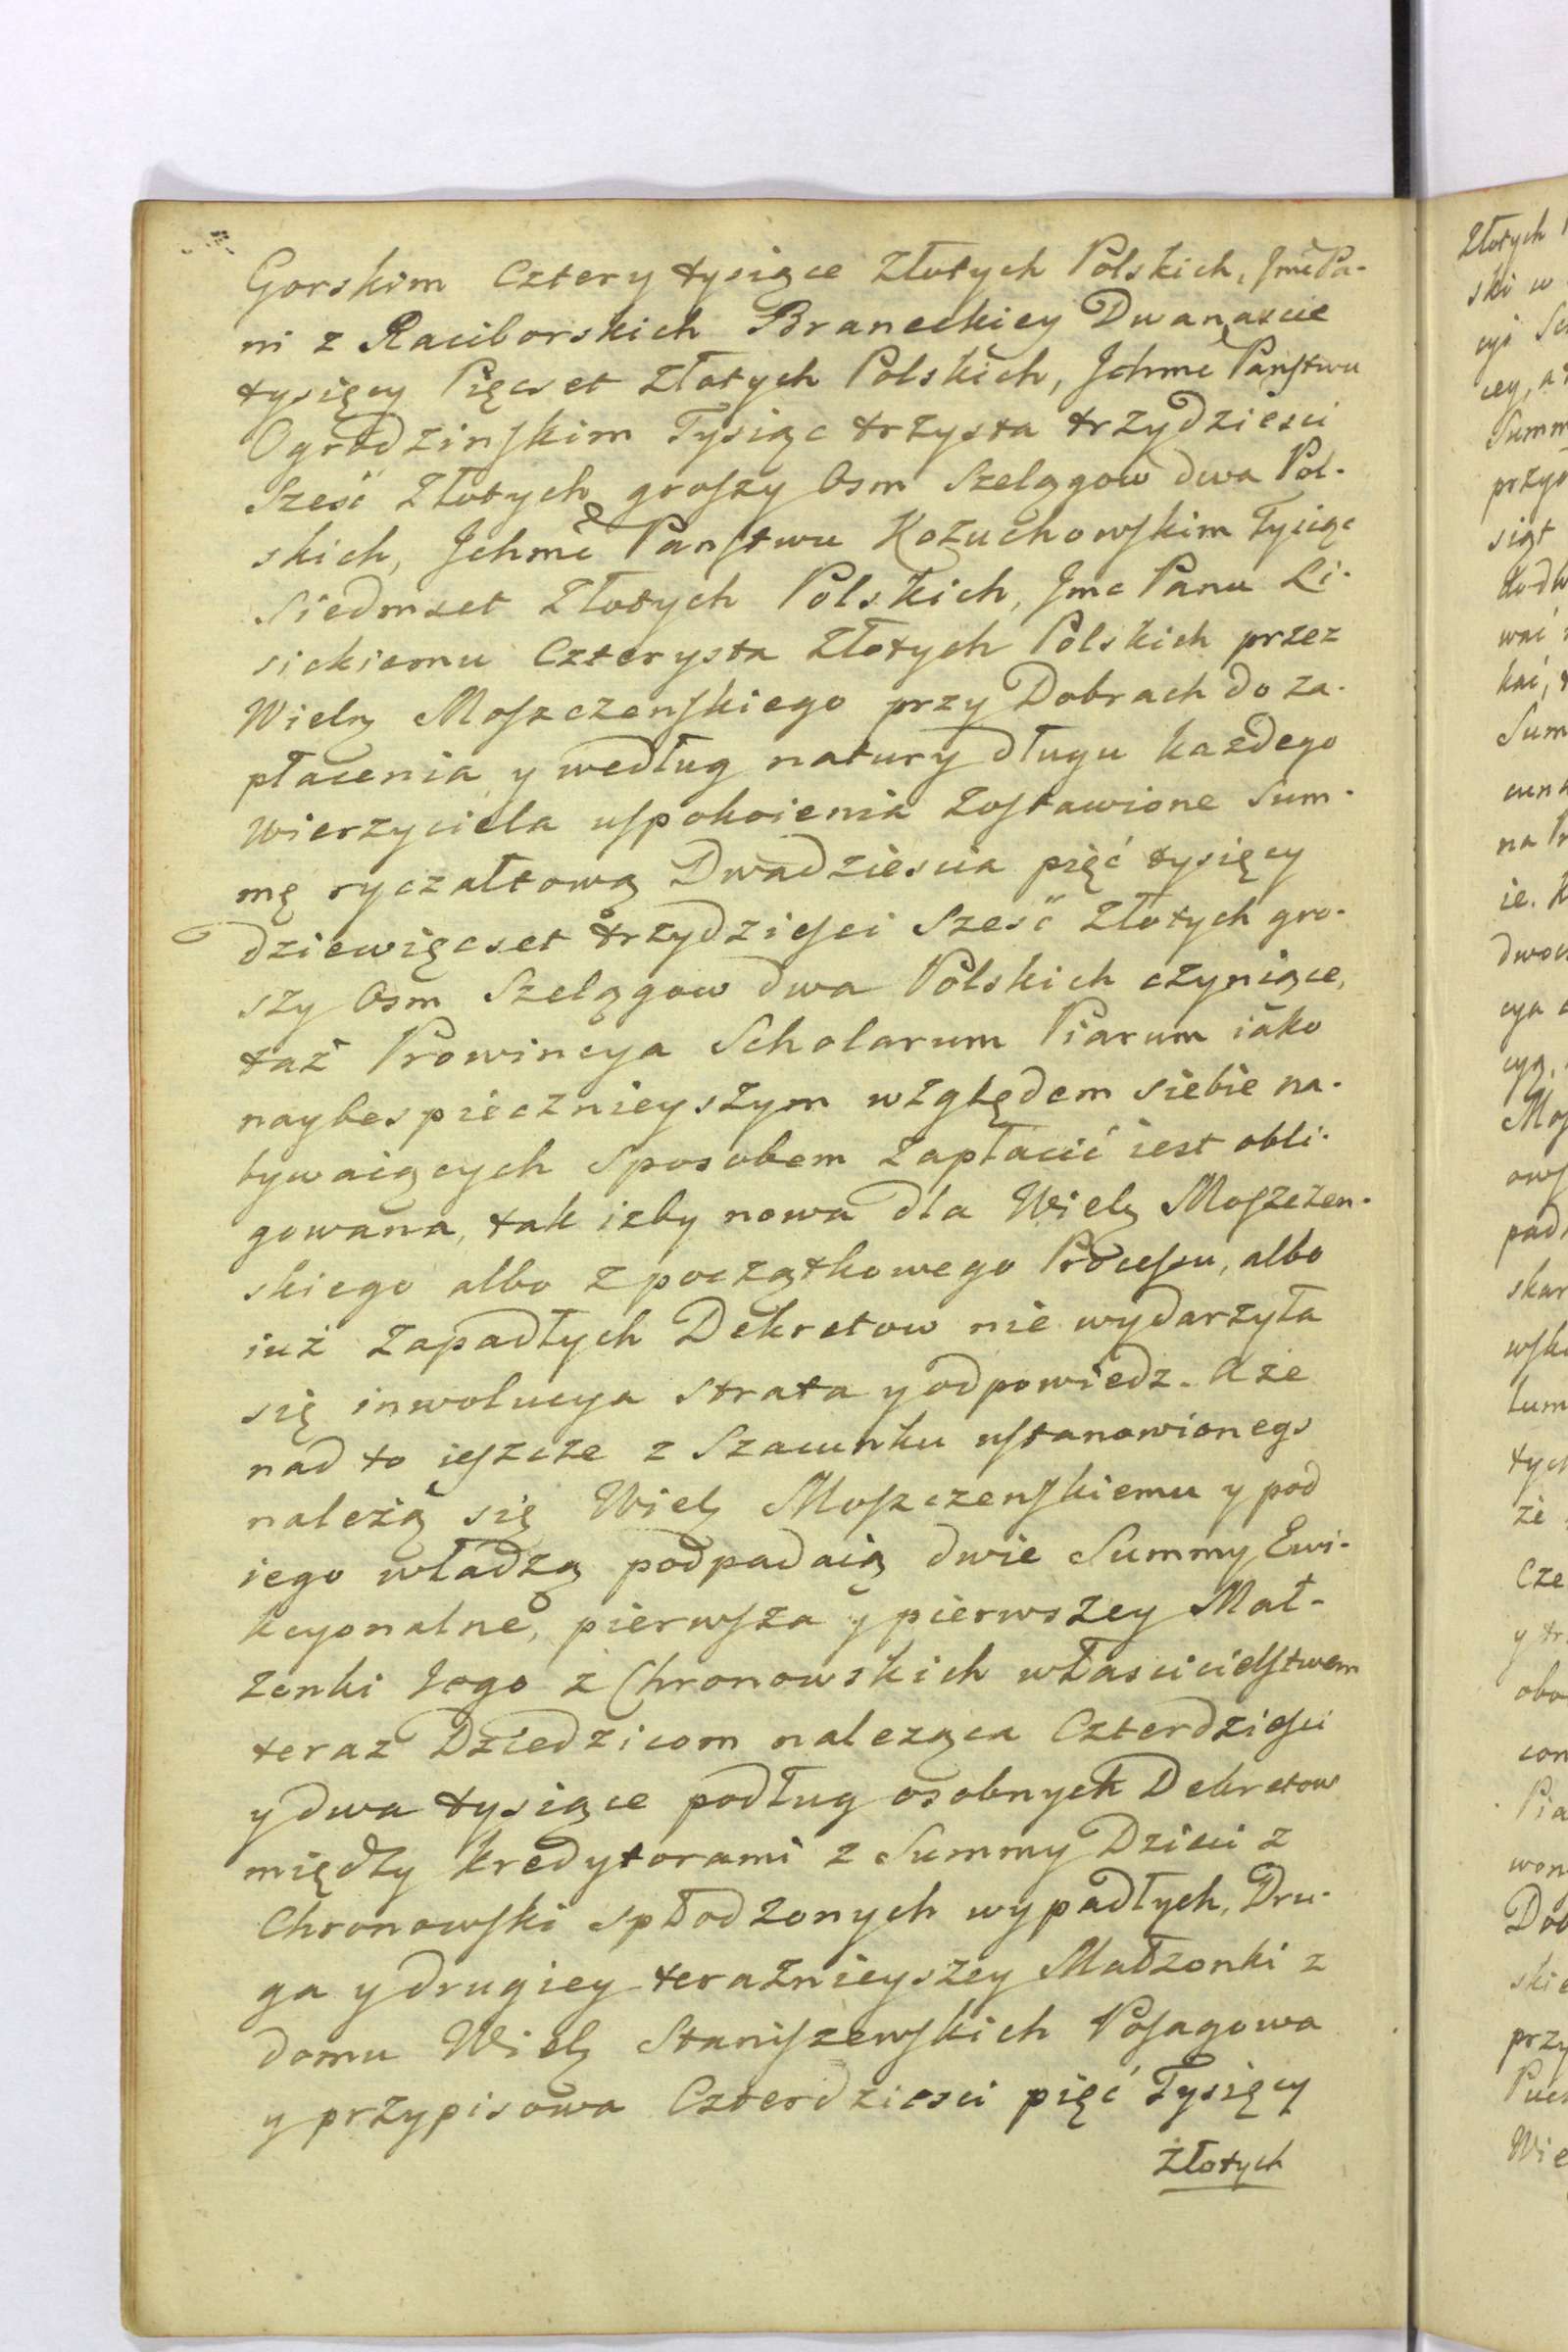 Gorskim Cztery tysiące Złotych Polskich, JmćPa-
ni z Raciborskich Braneckiey Dwanascie
tysięcy Pięcset Złotych Polskich, Jchmć Panstwu
Ogrodzinskim Tysiąc trzysta trzydziesci
Szesć Złotych groszy Osm Szelągow dwa Pol-
skich, Jchmć Panstwu Kożuchowskim Tysiąc
Siedmset Złotych Polskich, Jmc Panu Li-
sickiemu Czterysta Złotych Polskich przez
Wielg Moszczenskiego przy Dobrach do za-
płacenia y według natury długu każdego
Wierzyciela uspokoienia Zostawione Sum-
mę ryczałtową Dwadziescia pięć tysięcy
dziewięcset trzydziesci Szesć Złotych gro-
szy Osm Szelągow dwa Polskich czyniące,
taż Prowincya Scholarum Piarum iako
naybespiecznieyszym względem siebie na-
bywaiących Sposobem Zapłacić iest obli-
gowana, tak izby nowa dla Wielg Moszczen-
skiego albo z początkowego Processu, albo
iuż Zapadłych Dekretow nie wydarzyła
się inwolucya strata y odpowiedz. Aże
nad to ieszcze z Szacunku ustanowionego
należą się Wielg Moszczenskiemu y pod
iego władzą podpadaią dwie Summy Ewi-
kcyonalne, pierwsza y pierwszey Mał-
zonki Jego z Chronowskich własicielstwem
teraz Dziedzicom naleząca Czterdziesci
y dwa tysiące podług osobnych Dekretow
między kredytorami z Summy Dzieci z
Chronowski spłodzonych wypadłych, Dru-
ga y drugiey teraznieyszey Małzonki z
domu Wielg Staniszewskich Posagowa
y przypisowa Czterdziesci pięć Tysięcy
Złotych